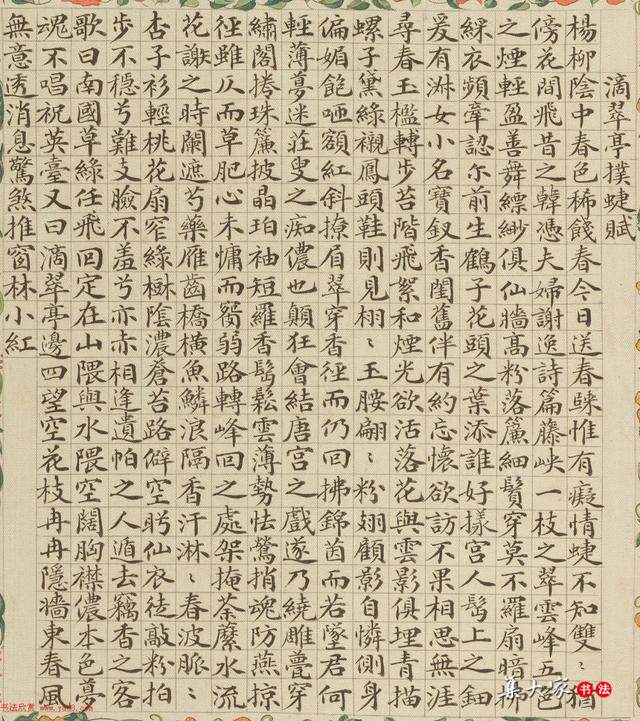 滴翠亭撲蜨賦
楊柳陰中春色稀餞春今日送春歸惟有癡情蜨不知雙〻猶
傍花間飛昔之韓憑夫婦謝逸詩篇藤峽一枝之翠雲峰五色
之煙輕盈善舞縹緲俱仙牆高粉落簾細鬢穿莫不羅扇暗撲
綵衣頻牽認尔前生鶴子花頭之葉添誰好樣宮人髩上之鈿
爰有淑女小名寶釵香閨舊伴有約忘懷欲訪不果相思無涯
尋春玉檻轉步苔階飛絮和煙光欲活落花與雲影俱埋青描
螺子黛綠襯鳳頭鞋則見栩〻玉腰翩〻粉翅顧影自憐側身
偏媚飽咂額紅斜撩眉翠穿香徑而仍回拂錦茵而若墜君何
輕薄夢迷莊叟之痴儂也顛狂會結唐宮之戲遂乃繞雕甍穿
繡閣捲珠簾披晶珀袖短羅香髩鬆雲薄勢怯鶯捎魂防燕掠
徑雖仄而草肥心未慵而弱路轉峰回之處架掩荼蘼水流
花謝之時闌遮芍藥雁齒橋橫魚鱗浪隔香汗淋〻春波脈〻
杏子衫輕桃花扇窄綠樹陰濃蒼苔路僻空眄仙衣徒敲粉拍
步不穩兮難支臉不羞兮亦赤相逢遺帕之人遁去竊香之客
歌曰南國草綠任飛回定在山隈與水隈空闊胸襟儂本色夢
魂不唱祝英臺又曰滴翠亭邊四望空花枝冉冉隱牆東春風
無意透消息驚煞推窗林小紅
集大家書法
书法欣赏